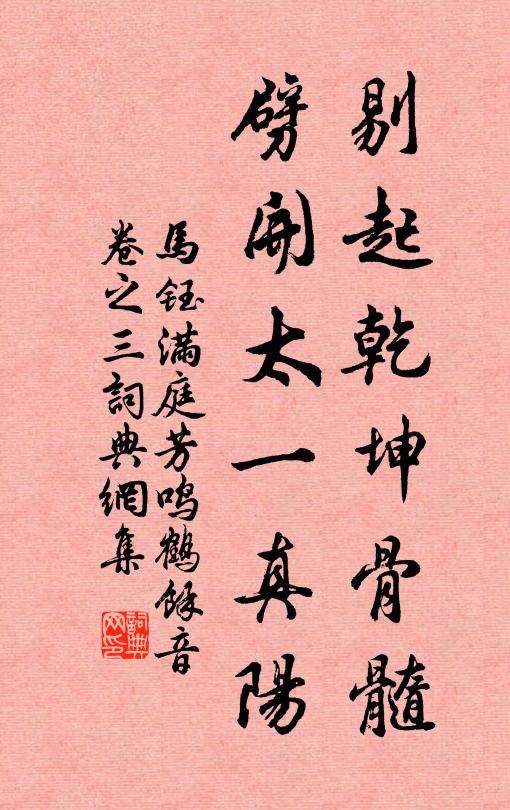 剔起乾坤骨髓
劈開太一真陽
馬鈺滿庭芳鳴鶴餘音
卷之三詞典網集
詞典网印